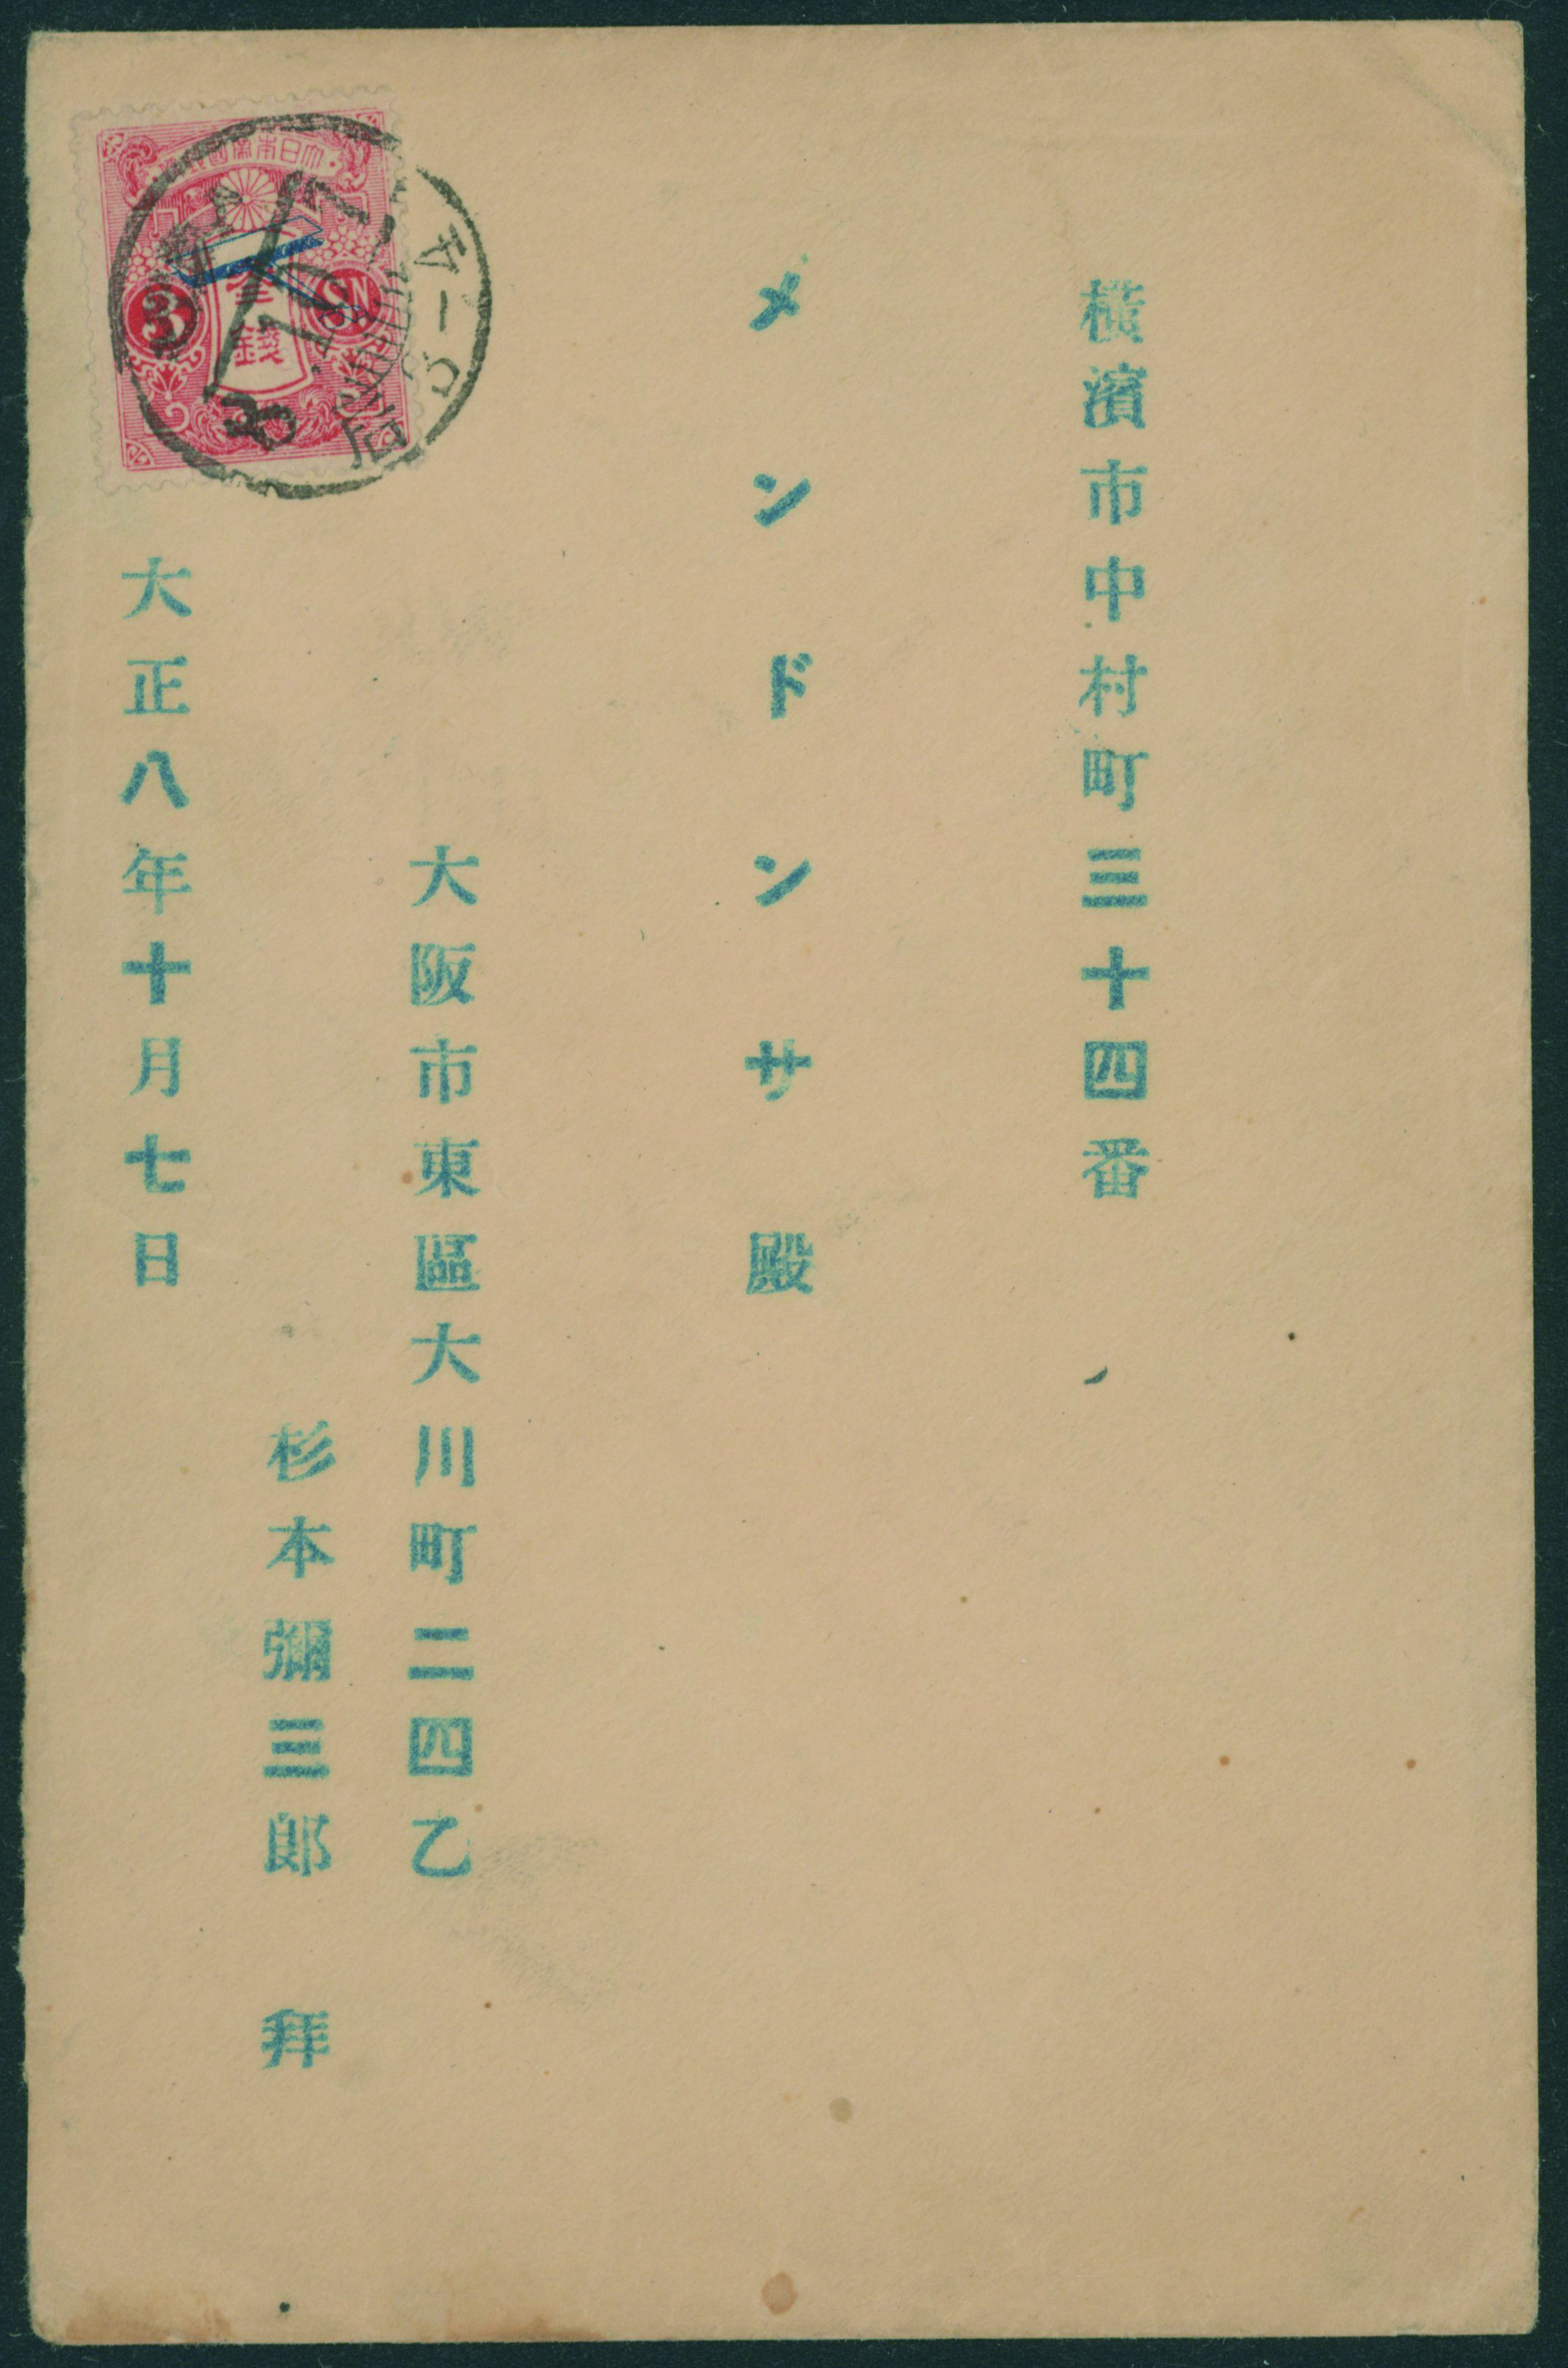 橫濱市中村町三十四番
メンドンサ殿
大阪市東區大川町二四乙
杉本彌三郎 拜
大正八年十月七日
大日本帝國郵便
3
SN
參錢